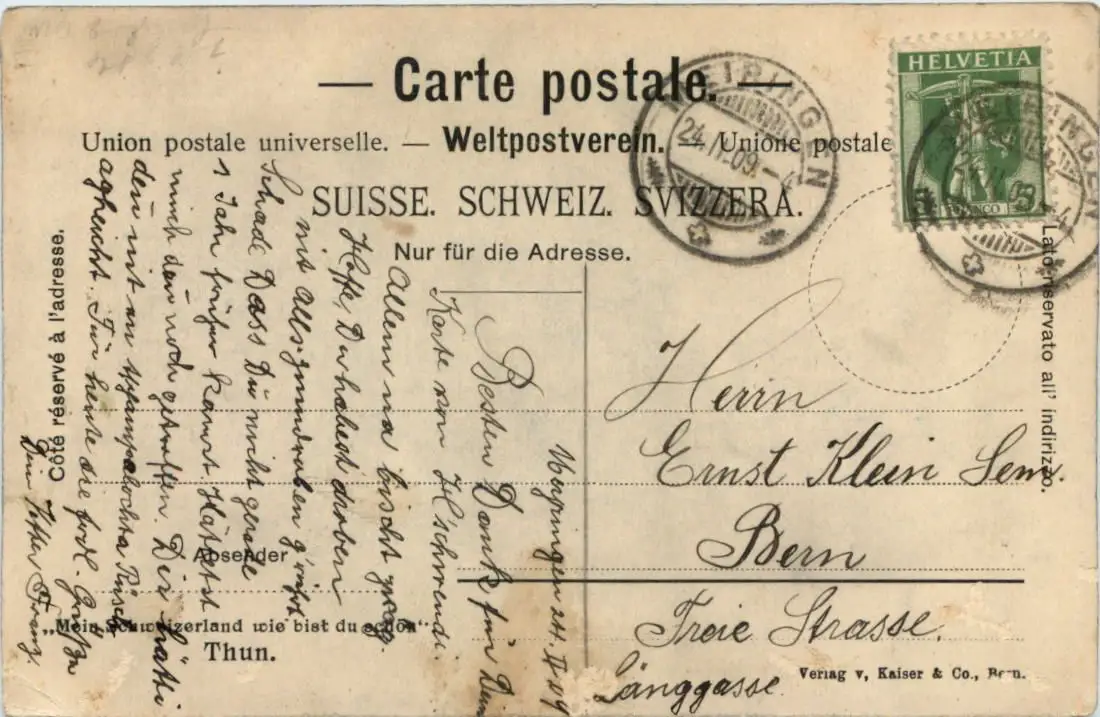 — Carte postale. —
Union postale universelle. — Weltpostverein. — Unione postale
SUISSE. SCHWEIZ. SVIZZERA.
Nur für die Adresse.
Côté réservé à l'adresse.
Lato riservato all' indirizzo.
HELVETIA
FRANCO
5
MEIRINGEN
24.II.09.-4
MEIRINGEN
Herrn
Ernst Klein Sem.
Bern
Freie Strasse.
Länggasse.
Meyringen 24. II 09
Besten Dank für Dein
Karte von
Allem na bischt
Hoffe, Du habest droben
mit
Schade Dass Du nicht gerade
1 Jahr früher kamst. Hättest
mich den noch getroffen. Der hätti
den mit en
agreicht. Für heute die frdl. Grüsse
Dein Vetter Franz.
Absender
„Mein Schweizerland wie bist du schön“
Thun.
Verlag v. Kaiser & Co., Bern.